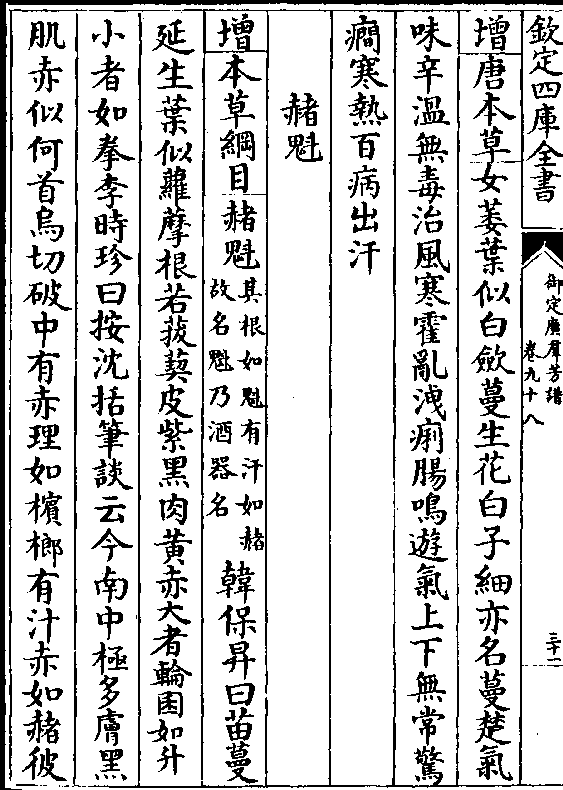 欽定四庫全書
御定廣羣芳譜
卷九十八
三十二
增唐本草女萎葉似白歛蔓生花白子細亦名蔓楚氣
味辛溫無毒治風寒霍亂洩痢腸鳴遊氣上下無常驚
癎寒熱百病出汗
赭魁
增本草綱目赭魁其根如魁有汗如赭故名魁乃酒器名韓保昇曰苗蔓
延生葉似蘿摩根若菝葜皮紫黑肉黃赤大者輪囷如升
小者如拳李時珍曰按沈括筆談云今南中極多膚黑
肌赤似何首烏切破中有赤理如檳榔有汁赤如赭彼